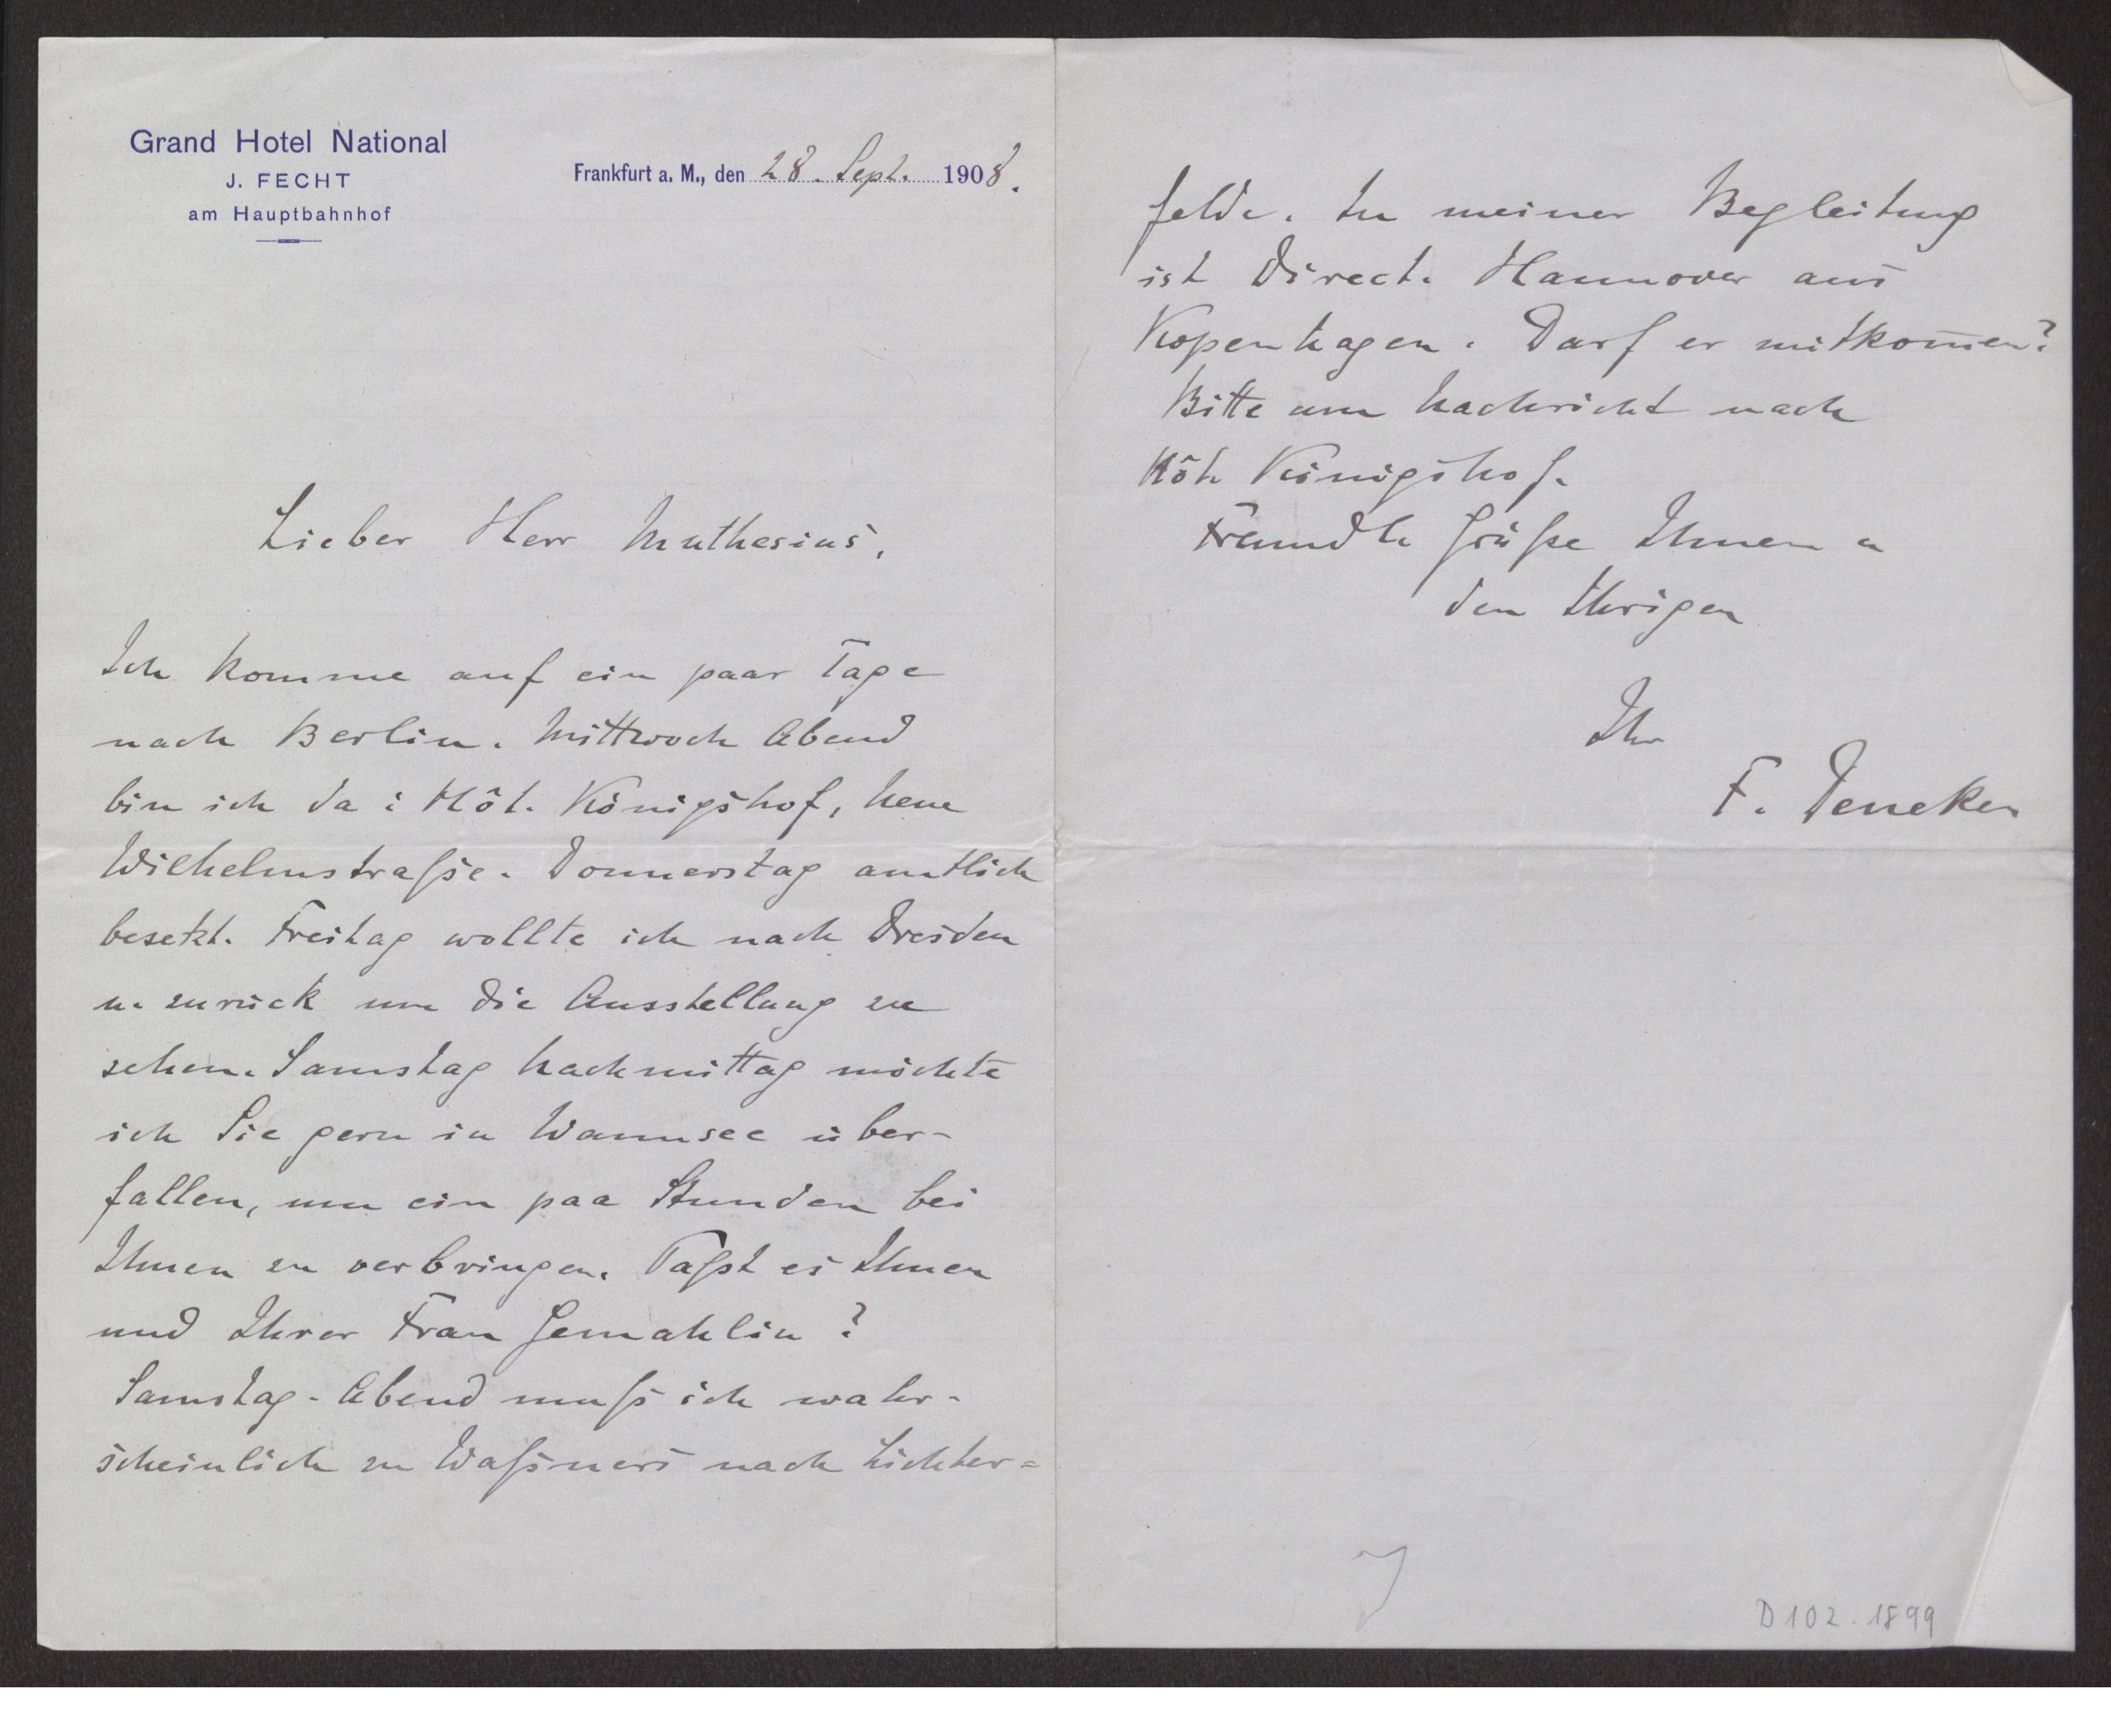 Grand Hotel National
J. FECHT
am Hauptbahnhof
Frankfurt a. M., den 28. Sept. 1908.
Lieber Herr Muthesius,
Ich komme auf ein paar Tage
nach Berlin. Mittwoch Abend
bin ich da: Hôt. Königshof, Neue
Wilhelmstraße. Donnerstag amtlich
besetzt. Freitag wollte ich nach Dresden
u. zurück um die Ausstellung zu
sehen. Samstag Nachmittag möchte
ich Sie gern in Wannsee über-
fallen, um ein paa Stunden bei
Ihnen zu verbringen. Paßt es Ihnen
und Ihrer Frau Gemahlin?
Samstag-Abend muß ich wahr-
scheinlich zu Waßners nach Lichter=
felde. In meiner Begleitung
ist Direct. Hannover aus
Kopenhagen. Darf er mitkom̄en?
Bitte um Nachricht nach
Hôt. Königshof.
Freundl. Grüße Ihnen u
den Ihrigen
Ihr
F. Deneken
D 102.1899